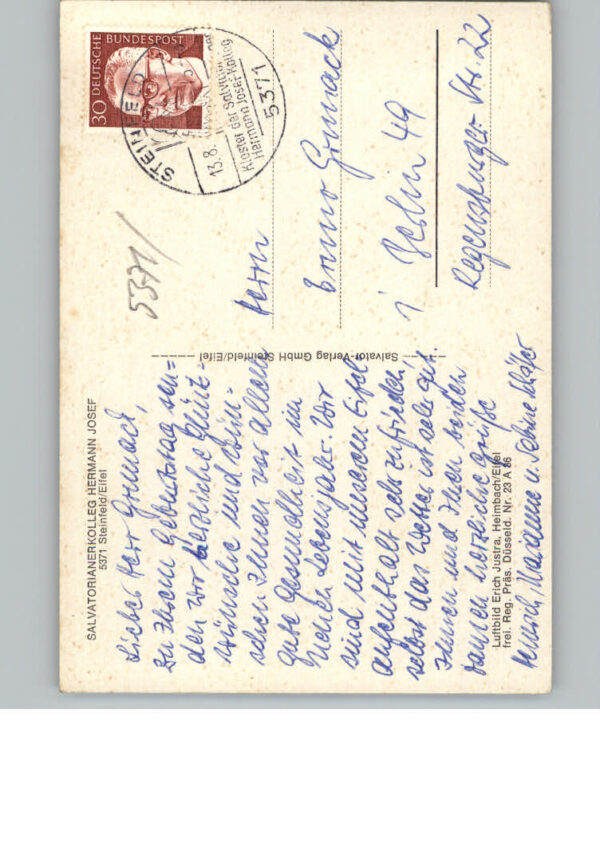 SALVATORIANERKOLLEG HERMANN JOSEF
5371 Steinfeld/Eifel
Lieber Herr Grunack,
Zu Ihrem Geburtstag sen-
den wir herzliche Glück-
wünsche und wün-
schen Ihnen vor allem
gute Gesundheit im
neuen Lebensjahr. Wir
sind mit unserem Eifel
aufenthalt sehr zufrieden
selbst das Wetter ist sehr gut.
Ihnen und Ihren beiden
Damen herzliche Grüße
Marianne u.
Luftbild Erich Justra, Heimbach/Eifel
frei. Reg. Präs. Düsseld. Nr. 23 A 86
Salvator-Verlag GmbH Steinfeld/Eifel
5371/
30 DEUTSCHE BUNDESPOST
STEINFELD
13.8.
Kloster der Salvator
Hermann Josef-Kolleg
5371
Herrn
Bruno Grunack
1 Berlin 49
Regensburger Str. 22